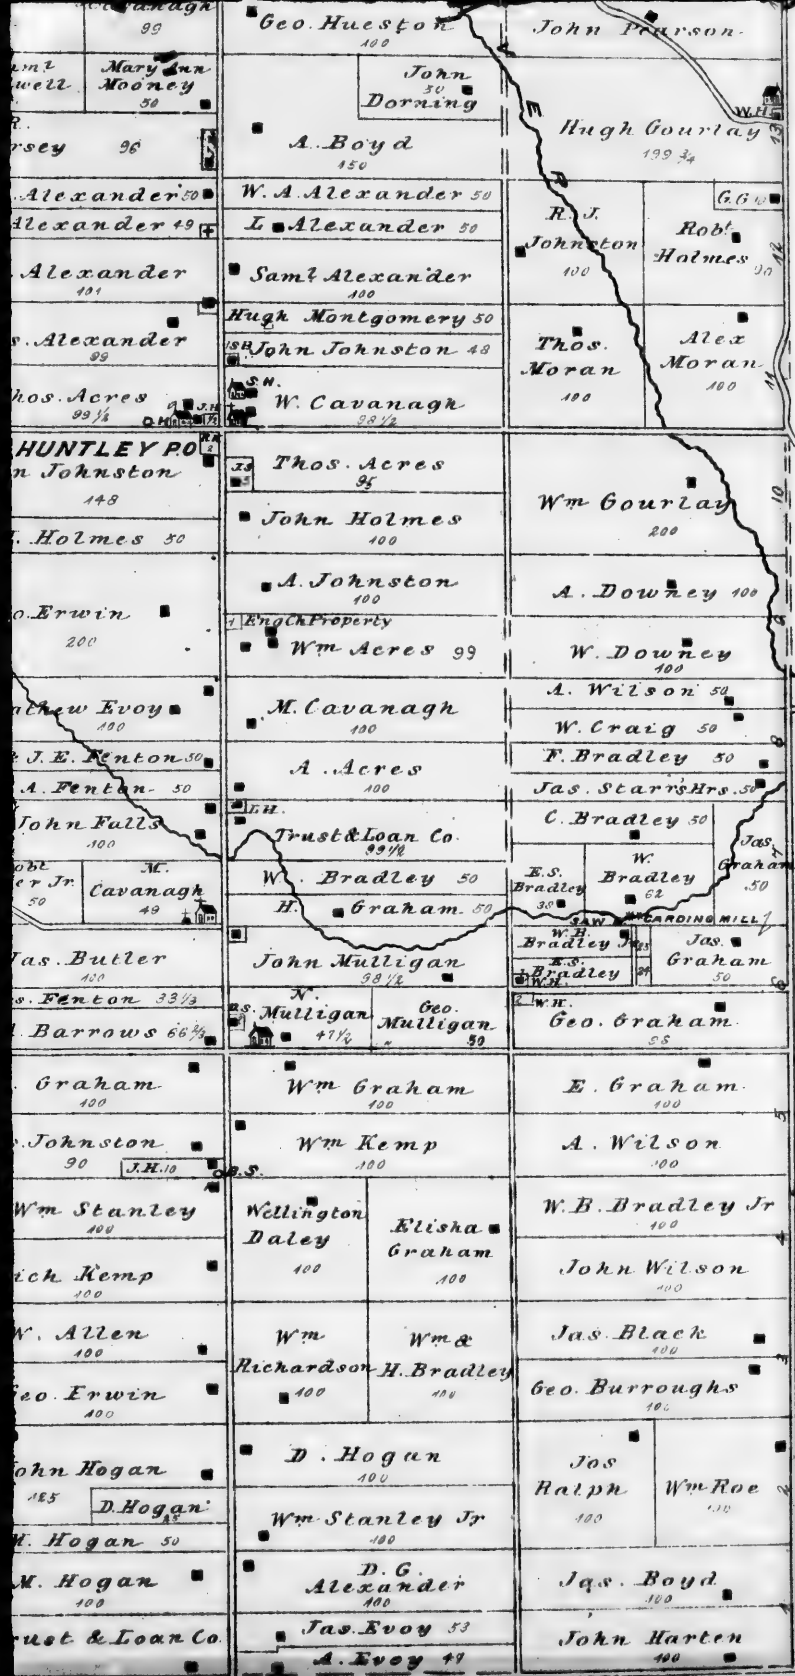 99
Mary Ann
Mooney
50
96
Alexander 50
Alexander 49
Alexander
101
Alexander
99
Acres
99 1/2
O.H.
J.H.
HUNTLEY P.O
Johnston
148
Holmes 50
Erwin
200
Evoy
100
J.E. Fenton 50
A. Fenton 50
John Falls
100
er Jr.
50
M.
Cavanagh
49
Jas. Butler
100
s. Fenton 33 1/3
Barrows 66 2/3
Graham
100
Johnston
90
J.H. 10
Wm Stanley
100
ich Kemp
100
W. Allen
100
Geo. Erwin
100
John Hogan
125
D. Hogan
25
M. Hogan 50
M. Hogan
100
rust & Loan Co.
Geo. Hueston
100
John
50
Dorning
A. Boyd
150
W. A. Alexander 50
L Alexander 50
Saml Alexander
100
Hugh Montgomery 50
John Johnston 48
S.H.
W. Cavanagh
98 1/2
Thos. Acres
95
John Holmes
100
A. Johnston
100
1 Eng Ch Property
Wm Acres 99
M. Cavanagh
100
A. Acres
100
Trust & Loan Co.
99 1/2
W. Bradley 50
H. Graham 50
John Mulligan
98 1/2
N.
Mulligan
47 1/2
Geo.
Mulligan
50
Wm Graham
100
Wm Kemp
100
B.S.
Wellington
Daley
100
Elisha
Graham
100
Wm
Richardson
100
Wm &
H. Bradley
100
D. Hogan
100
Wm Stanley Jr
100
D. G.
Alexander
100
Jas. Evoy 53
A. Evoy 47
John Pearson
W.H.
Hugh Gourlay
199 3/4
13
R. J.
Johnston
100
G.G 10
Robt
Holmes
90
12
Thos.
Moran
100
Alex
Moran
100
11
Wm Gourlay
200
10
A. Downey 100
9
W. Downey
100
A. Wilson 50
W. Craig 50
8
F. Bradley 50
Jas. Starr's Hrs. 50
C. Bradley 50
E.S.
Bradley
38
W.
Bradley
62
Jas.
Graham
50
7
SAW M
CARDING MILL
W.B.
Bradley Jr
25
E.S.
Bradley
24
W.H.
Jas.
Graham
50
6
2 W.H.
Geo. Graham
98
E. Graham
100
5
A. Wilson
100
W. B. Bradley Jr
100
4
John Wilson
100
Jas. Black
100
3
Geo. Burroughs
100
Jos
Ralph
100
Wm Roe
100
2
Jas. Boyd
100
1
John Harten
100